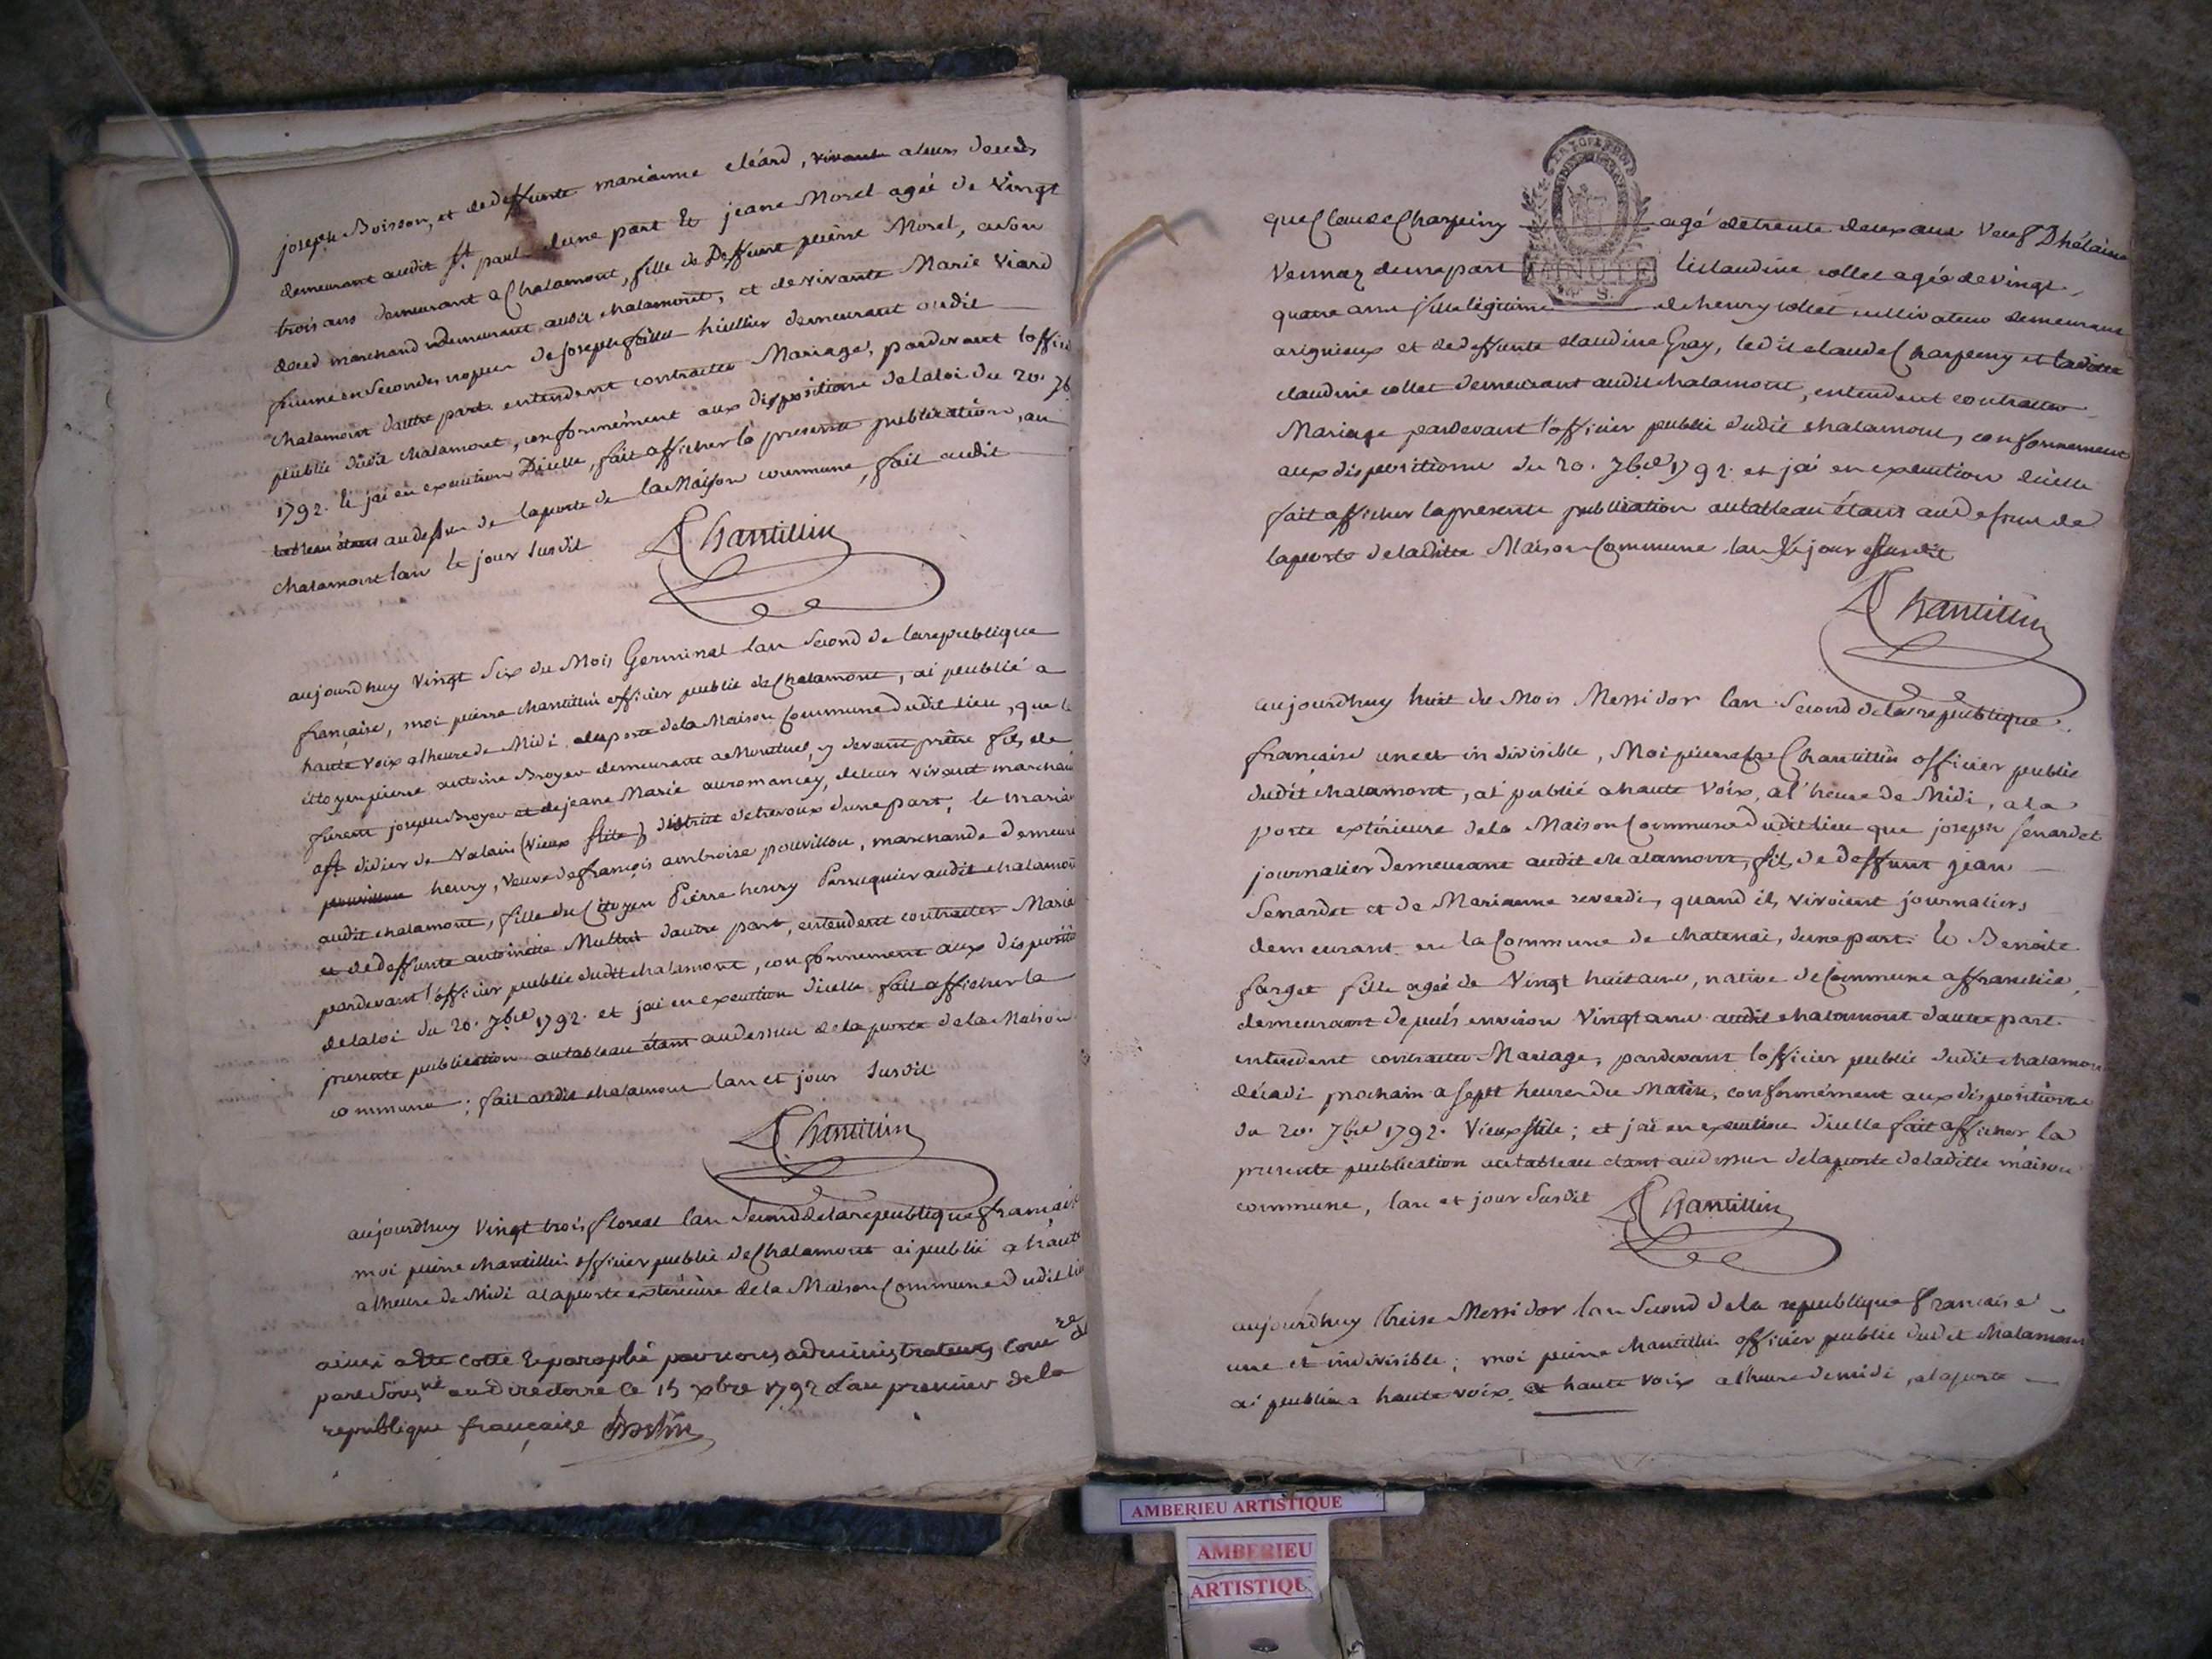 joseph Boisson, et de deffunte marianne cléard, vivante a leurs decès
demeurant audit St paul dune part Et jeane Morel agée de Vingt
trois ans demeurant a Chalamont, fille de Deffunt pierre Morel, a son
deced marchand demeurant audit chalamont, et de vivante Marie Viard
femme en Secondes nopces de joseph hiellier demeurant audit
chalamont dautre part entendent contracter Mariage, pardevant loffici
public dudit chalamont, conformément aux dispositions de la loi du 20. 7b
1792. Et jai en execution Dicelle, fait afficher la presente publication, au
tableau étant au dessus de la porte de la Maison commune, fait audit
chalamont lan le jour susdit
PChantillin
aujourdhuy Vingt Six du Mois Germinal lan Second de la republique
française, moi pierre chantillin officier public de Chalamont, ai publié a
haute voix a lheure de Midi a la porte de la Maison Commune dudit lieu, que le
Citoyen pierre antoine Broyer demeurant a Montluel, cy devant prêtre fils de
furent joseph Broyer et de jeane Marie auromancey, de leur vivant marchan
a St didier de Valain (vieux stile) district de trevoux dune part, le maria
pouvillon henry, Veuve de françois ambroise pouvillon, marchande demeur
audit chalamont, fille du Citoyen Pierre henry Perruquier audit chalamon
et de deffunte antoinette Multin dautre part, entendent contracter Maria
pardevant l'officier public dudit chalamont, conformement aux dispositio
de la loi du 20. 7bre 1792. et jai en execution dicelle fait afficher la
presente publication au tableau étant audessus de la porte de la Maison
commune; fait audit chalamont lan et jour susdit
PChantillin
aujourdhuy Vingt trois floreal lan Second de la republique français
moi pierre chantillin officier public de Chalamont ai publié a haute
a lheure de Midi a la porte extérieure de la Maison Commune dudit lie
ainsi a été cotté & paraphé par nous administrateurs Comre de
par soussné au directoire ce 15 xbre 1792 Lan premier de la
republique française
que Claude Charpeiny agé de trente deux ans Veuf D hélaine
Vennaz dune part Et Claudine collet agée de Vingt
quatre ans fille légitime de henry collet cultivateur demeurant
a rignieux et de deffunte claudine Gray, ledit claude Charpeiny et ladite
claudine collet demeurant audit chalamont, entendent contracter
Mariage pardevant l'officier public dudit chalamont, conformement
aux dispositions du 20. 7bre 1792. et jai en execution dicelle
fait afficher la presente publication au tableau étant au dessus de
la porte de laditte Maison Commune lan & jour susdit
PChantillin
MINUTE
aujourdhuy huit du Mois Messidor lan Second de la republique
française une et indivisible, Moi pierre Chantillin officier public
dudit chalamont, ai publié a haute voix, a l'heure de Midi, a la
porte extérieure de la Maison Commune dudit lieu que joseph Senardet
journalier demeurant audit chalamont, fils de deffunt jean
Senardet et de Marianne reverdi, quand ils vivoient journaliers
demeurant en la Commune de chatenai, dune part. Et Benoite
farget fille agée de Vingt huit ans, native de Commune affranchie,
demeurant depuis environ Vingt ans audit chalamont dautre part.
entendent contracter Mariage, pardevant l'officier public dudit chalamon
décadi prochain a sept heures du Matin, conformément aux dispositions
du 20. 7bre 1792. Vieux stile; et jai en execution dicelle fait afficher la
presente publication au tableau étant audessus de la porte de laditte maison
commune, lan et jour susdit PChantillin
aujourdhuy Treise Messidor lan Second de la republique française
une et indivisible; moi pierre chantillin officier public dudit chalamon
ai publié a haute voix et haute voix a lheure de midi, a la porte
AMBERIEU ARTISTIQUE
AMBERIEU
ARTISTIQU